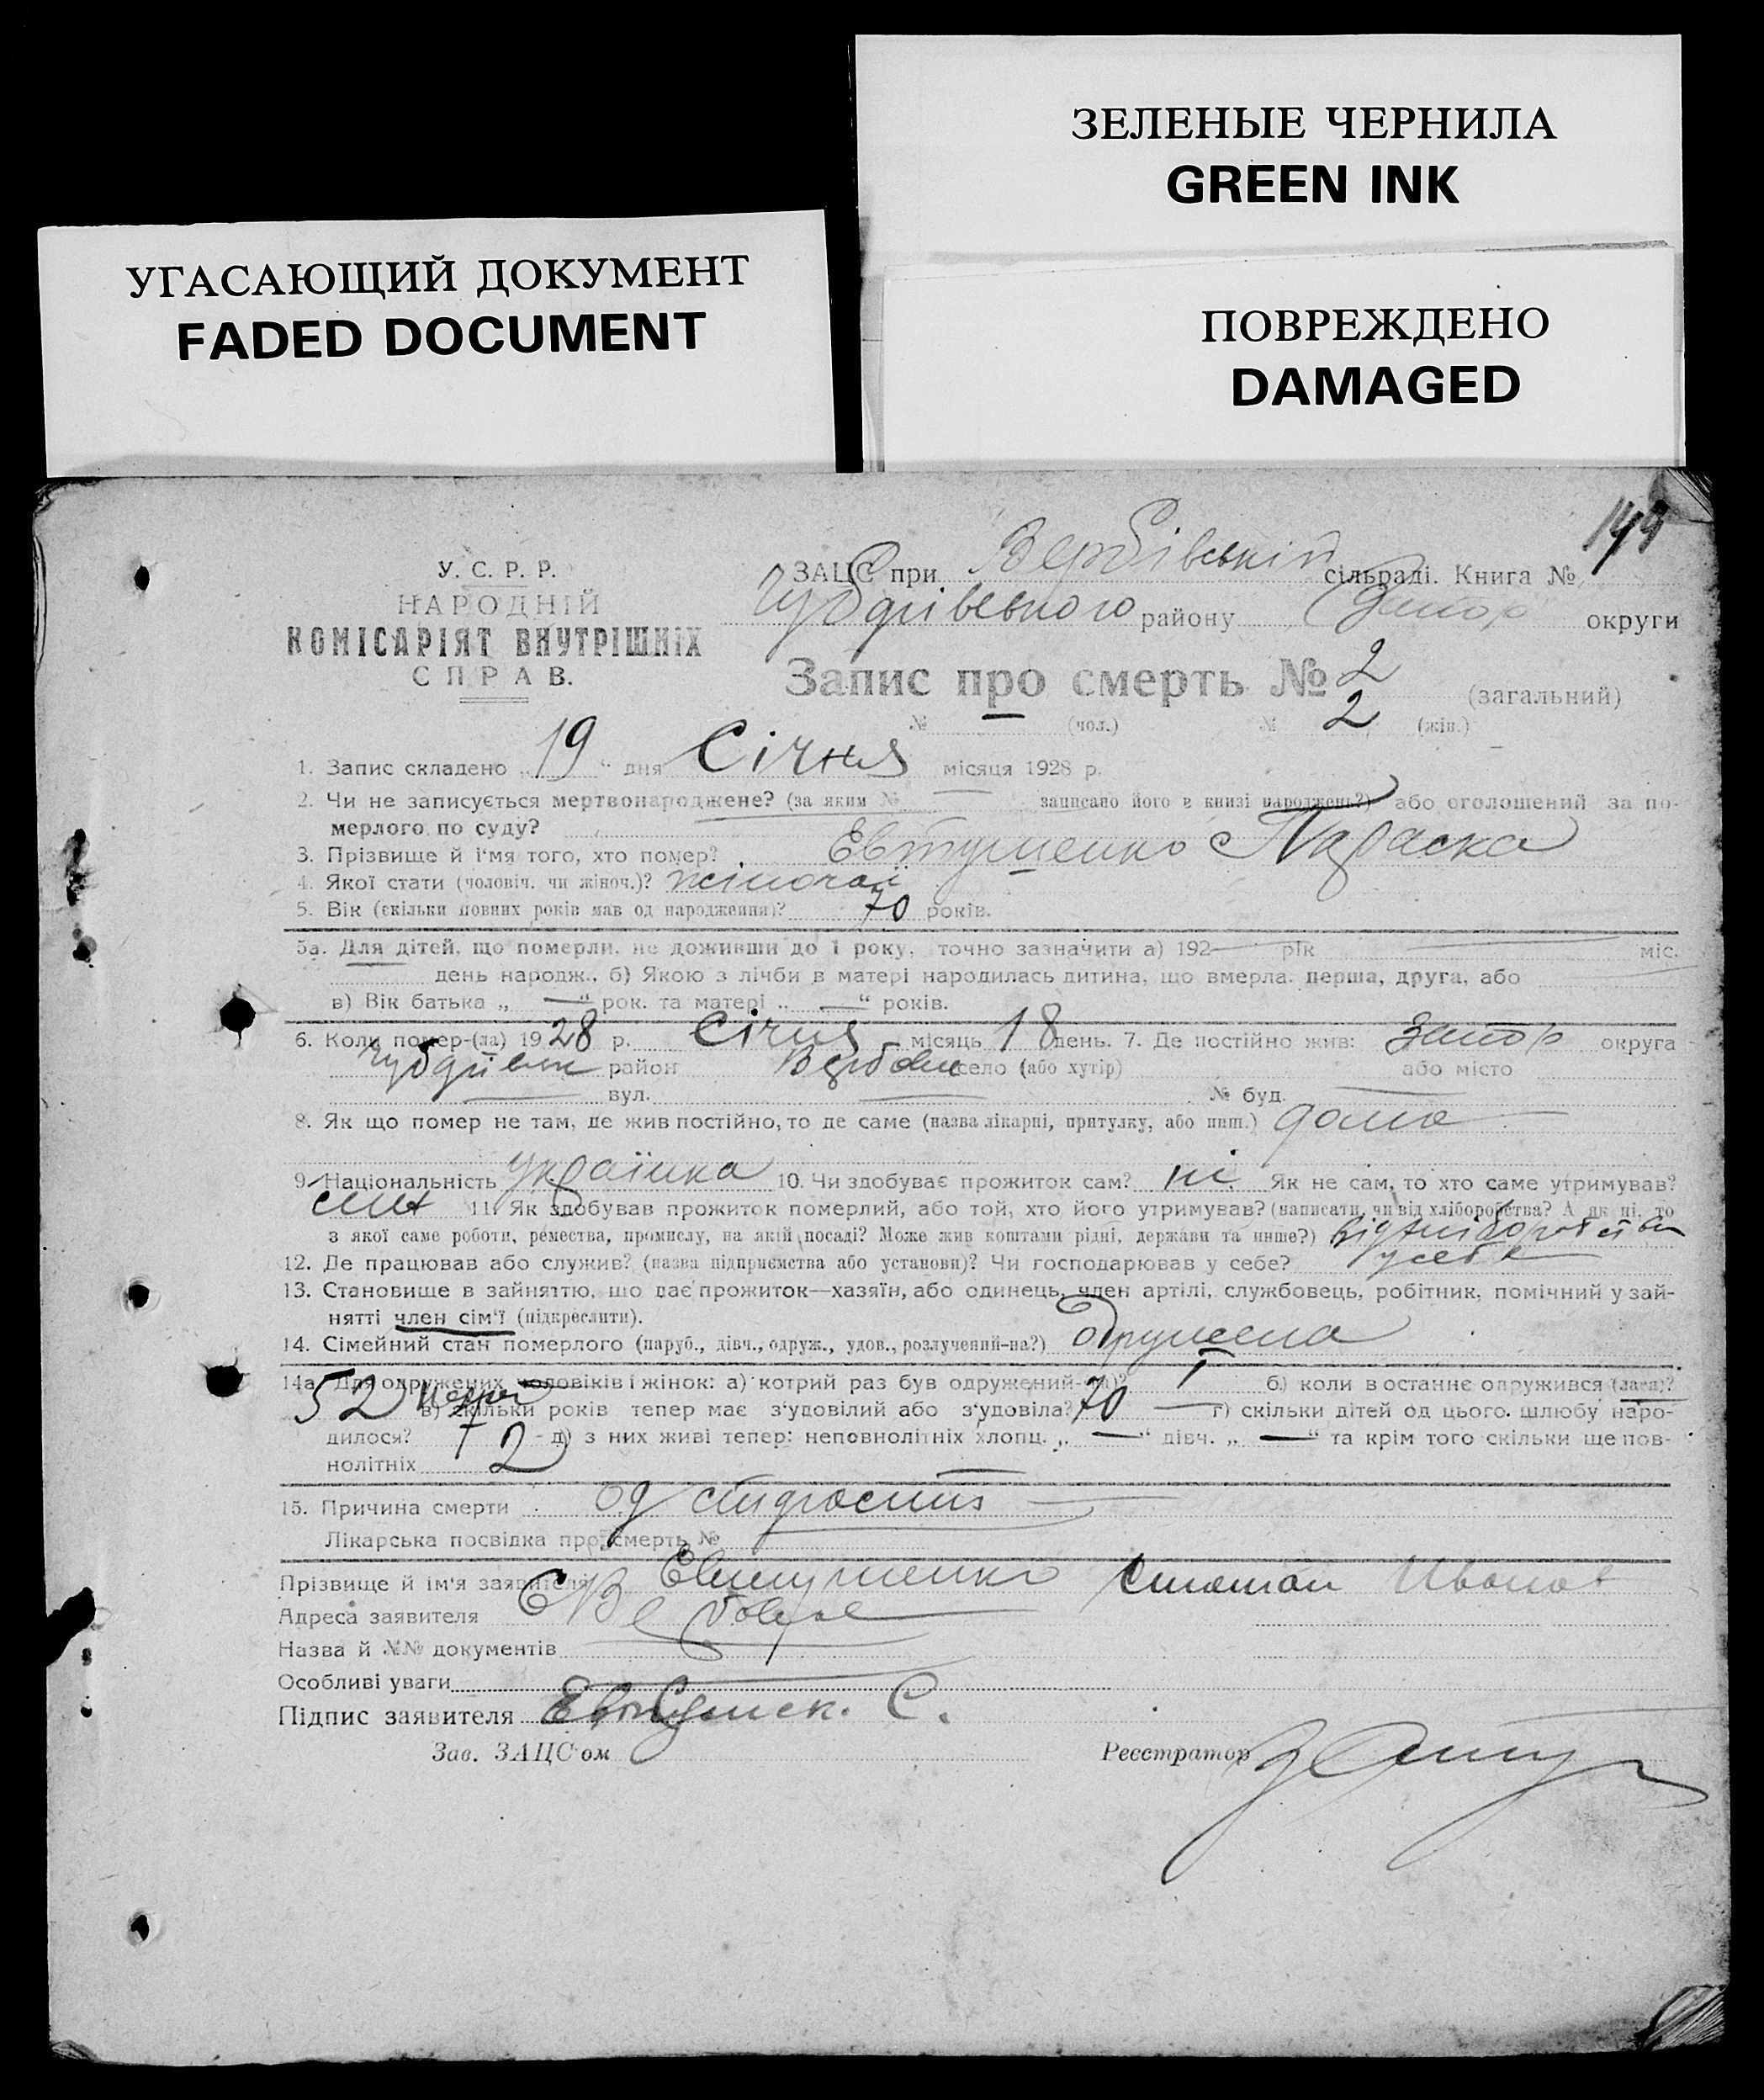 ЗЕЛЕНЫЕ ЧЕРНИЛА
GREEN INK
УГАСАЮЩИЙ ДОКУМЕНТ
FADED DOCUMENT
ПОВРЕЖДЕНО
DAMAGED
У. С. Р. Р.
НАРОДНІЙ
КОМІСАРІЯТ ВНУТРІШНІХ
СПРАВ.
ЗАЦС при Вербівській сільраді. Книга №
району Запор округи
Запис про смерть № 2 (загальний)
№ — (чол.) № 2 (жін.)
1. Запис складено „19“ дня Січня місяця 1928 р.
2. Чи не записується мертвонароджене? (за яким № — записано його в книзі народжень?) або оголошений за по-
мерлого по суду?
3. Прізвище й і'мя того, хто помер? Євтушенко Параска
4. Якої стати (чоловіч. чи жіноч.)? жіночої
5. Вік (скільки повних років мав од народження)? 70 років.
5а. Для дітей, що померли, не доживши до 1 року, точно зазначити а) 192— рік — міс.
день народж., б) Якою з лічби в матері народилась дитина, що вмерла: перша, друга, або
в) Вік батька „—“ рок. та матері „—“ років.
6. Коли помер-(ла) 1928 р. Січня місяць 18 день. 7. Де постійно жив: Запор округа
район Вербове село (або хутір) або місто
— вул. — № буд. —
8. Як що помер не там, де жив постійно, то де саме (назва лікарні, притулку, або инш.) дома
9. Національність Українка 10. Чи здобуває прожиток сам? ні. Як не сам, то хто саме утримував?
син 11. Як здобував прожиток померлий, або той, хто його утримував? (написати, чи від хліборобства? А як ні, то
з якої саме роботи, ремества, промислу, на якій посаді? Може жив коштами рідні, держави та инше?) від хліборобства
12. Де працював або служив? (назва підприємства або установи)? Чи господарював у себе? у себе
13. Становище в зайняттю, що дає прожиток—хазяїн, або одинець, член артілі, службовець, робітник, помічний у зай-
нятті член сім'ї (підкреслити).
14. Сімейний стан померлого (паруб., дівч., одруж., удов., розлучений-на?) одружена
14а. Для одружених чоловіків і жінок: а) котрий раз був одружений-(на)? I б) коли востаннє одружився (лася)?
52 в) скільки років тепер має з'удовілий або з'удовіла? 70 — г) скільки дітей од цього шлюбу наро-
дилося? 7 д) з них живі тепер: неповнолітніх хлопц. „—“ дівч. „—“ та крім того скільки ще пов-
нолітніх 2
15. Причина смерти од старости
Лікарська посвідка про смерть №
Прізвище й ім'я заявителя Євтушенко Степан
Адреса заявителя
Назва й №№ документів
Особливі уваги
Підпис заявителя С.
Зав. ЗАЦС'ом Реєстратор